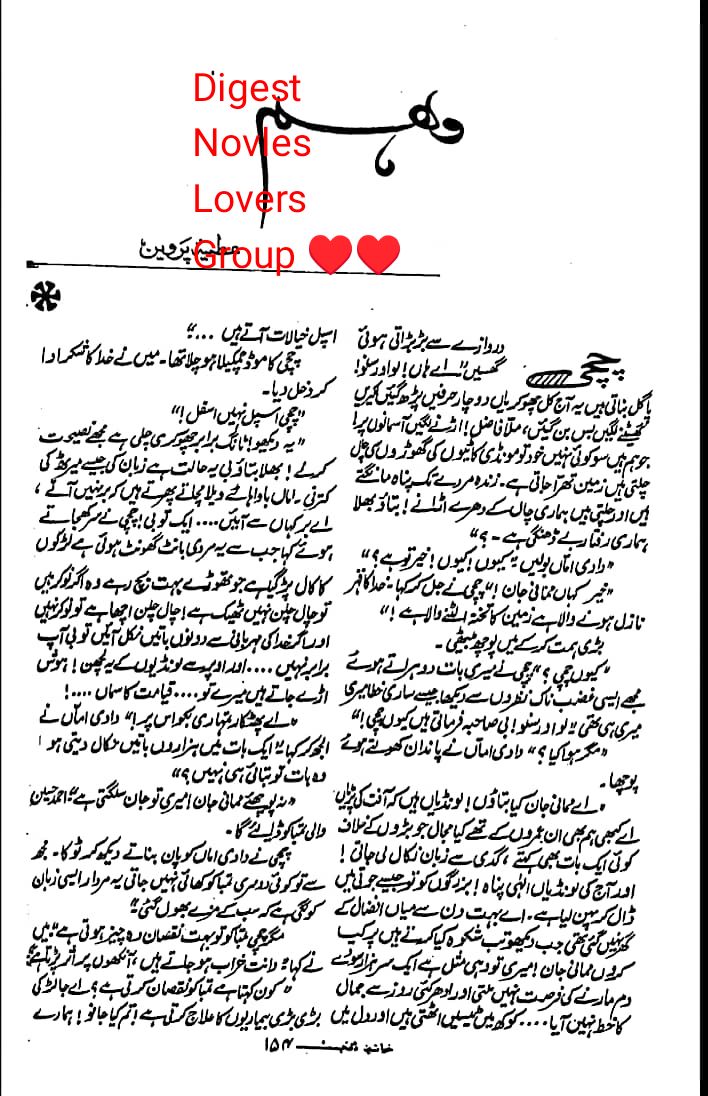 Digest
Novles
Lovers
Group ♥♥
وہم
عطیہ پروین
چچی
دروازے سے بڑبڑاتی ہوئی
گھسیں "اے ہاں! لو اور سنو!
پاگل بناتی ہیں یہ آج کل چھوکریاں دو چار حرفیں پڑھ گئیں
لگیں بس بن گئیں، ملّا فاضل! اڑنے لگیں آسمانوں پر!
جو ہم ہیں سو کوئی نہیں خود تو مونڈی کاٹیوں کی گھوڑوں کی چال
چلتی ہیں زمین تھرا جاتی ہے۔ زندہ مردے تک پناہ مانگتے
ہیں اور چلتی ہیں ہماری چال کے دھرے اڑانے! بتاؤ بھلا
ہماری رفتار بے ڈھنگی ہے۔ ؟"
"دادی اماں بولیں "اے کیوں! کیوں! خیر تو ہے؟"
"خیر کہاں ممانی جان!" چچی نے جل کر کہا۔ "خدا کا قہر
نازل ہونے والا ہے زمین کا تختہ الٹنے والا ہے!"
بڑی ہمت کر کے میں پوچھ بیٹھی۔
"کیوں چچی؟" چچی نے میری بات دوہراتے ہوئے
مجھے ایسی غضب ناک نظروں سے دیکھا جیسے ساری خطا میری
میری ہی تھی "لو اور سنو! بی صاحبہ فرماتی ہیں کیوں چچی!"
"مگر ہوا کیا؟" دادی اماں نے پاندان کھولتے ہوئے
پوچھا۔
"اے ممانی جان کیا بتاؤں! لونڈیاں ہیں کہ آفت کی پڑیاں
اے کبھی ہم بھی ان عمروں کے تھے کیا مجال جو بڑوں کے خلاف
کوئی ایک بات بھی کہتے، گدی سے زبان نکال لی جاتی!
اور آج کی لونڈیاں الٰہی پناہ! بزرگوں کو تو جیسے جوتی میں
ڈال کر پہن لیا ہے۔ اے بہت دن سے میاں افضال کے
گھر نہیں گئی تھی جب دیکھو تب شکوہ کیا کرتے ہیں پر کب
کروں ممانی جان! میری تو وہی مثل ہے ایک سر ہزار سودے
دم مارنے کی فرصت نہیں ملتی اور ادھر کئی روز سے جمال
کا خط نہیں آیا.... کوکھ میں ٹیسیں اٹھتی ہیں اور دل میں
اسپل خیالات آتے ہیں ..."
چچی کا موڈ چمکیلا ہو چلا تھا۔ میں نے خدا کا شکر ادا
کر دخل دیا۔
"چچی اسپل نہیں اسفل!"
"یہ دیکھو! ٹانگ برابر چھوکری چلی ہے مجھے نصیحت
کرنے! بھلا بتاؤ بی یہ حالت ہے زبان کی جیسے ٹیرکٹ کی
کترنی۔ اماں باوا ہائے ویلا مچاتے پھرتے ہیں کہ بر نہیں آتے،
اے بر کہاں سے آئیں.... ایک تو بی! چچی نے سر کھجاتے
ہوئے کہا جب سے یہ مردی بانٹ گھونٹ ہوئی ہے لڑکوں
کا کال پڑ گیا ہے جو تھوڑے بہت بچ رہے وہ اگر نوکر ہیں
تو چال چلن نہیں ٹھیک ہے! چال چلن اچھا ہے تو نوکر نہیں
اور اگر خدا کی مہربانی سے دونوں باتیں نکل آئیں تو بی آپ
برابر نہیں .... اور اوپر سے لونڈیوں کے یہ لچھن! ہوش
اڑے جاتے ہیں میرے تو.... قیامت کا سماں ....!
"اے پھٹکار تمہاری بکواس پر!" دادی اماں نے
الجھ کر کہا "ایک بات میں ہزاروں باتیں نکال دیتی ہو!
وہ بات تو بتائی ہی نہیں؟"
"نہ پوچھئے ممانی جان! میری تو جان سلگتی ہے "احمد حسین
والی تمباکو ڈالئے گا۔
چچی نے دادی اماں کو پان بناتے دیکھ کر ٹوکا۔ مجھ
سے تو کوئی دوسری تمباکو کھائی نہیں جاتی یہ مردار ایسی زبان
کو لگی ہے کہ سب کے مزے بھول گئی"
مگر چچی تمباکو تو بہت نقصان دہ چیز ہوتی ہے "میں
نے کہا "دانت خراب ہو جاتے ہیں، آنکھوں پر اثر پڑتا ہے"
"کون کہتا ہے تمباکو نقصان کرتی ہے؟ اے جا لڑکی
بڑی بڑی بیماریوں کا علاج کرتی ہے! تم کیا جانو! ہمارے
۱۵۴